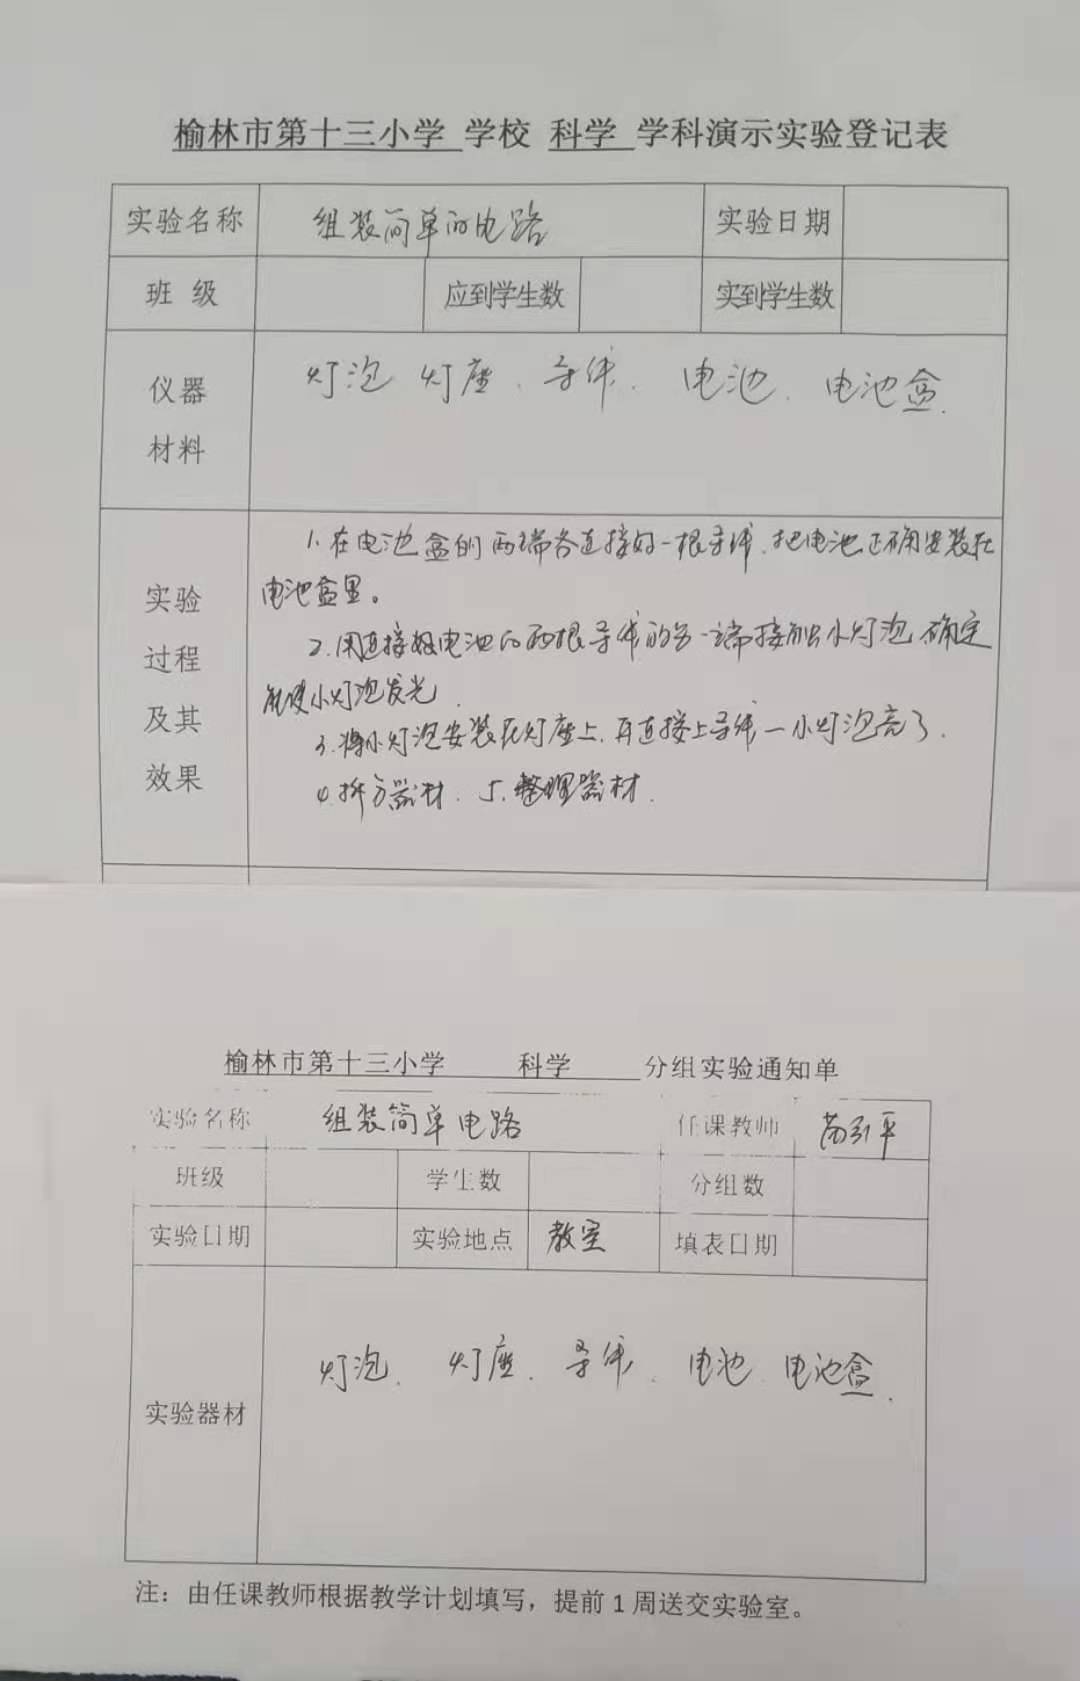 榆林市第十三小学 学校 科学 学科演示实验登记表
实验名称 组装简单的电路 实验日期
班 级 应到学生数 实到学生数
仪器 灯泡 灯座、导体、电池、电池盒.
材料
1.在电池盒的两端各连接好一根导体,把电池正确安装在
实验 电池盒里。
过程 2.用连接好电池的两根导体的另一端接触小灯泡 确定
及其 能使小灯泡发光.
3.将小灯泡安装在灯座上,再连接上导体一小灯泡亮了.
效果 4.拆方器材. 5.整理器材.
榆林市第十三小学 科学 分组实验通知单
实验名称 组装简单电路 任课教师 平
班级 学生数 分组数
实验日期 实验地点 教室 填表日期
灯泡、灯座、导体、电池 电池盒.
实验器材
注:由任课教师根据教学计划填写,提前1周送交实验室。